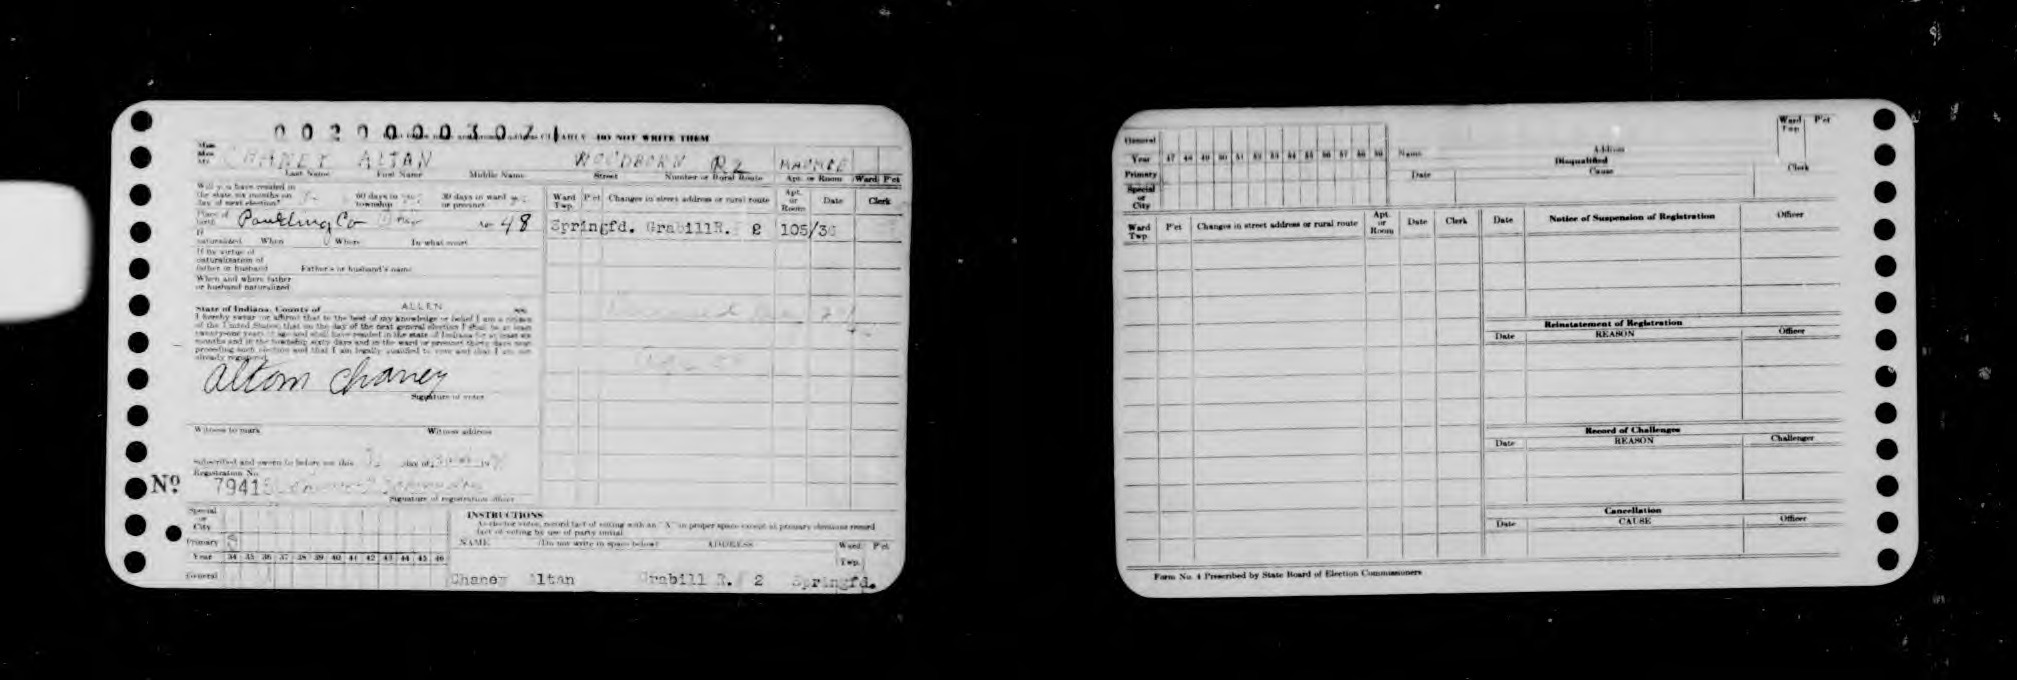 0020000307 CLEARLY DO NOT WRITE THEM
CHANEY ALTAN WOODBORN R2 MAUMEE
Last Name First Name Middle Name Street Number or Rural Route Apt. or Room Ward P'ct
Will you have resided in
the state six months on 60 days in 30 days in ward
day of next election? township or precinct
Place of
birth Paulding Co 48
If
naturalized When Where In what court
If by virtue of
naturalization of
father or husband Father's or husband's name
When and where father
or husband naturalized
State of Indiana, County of ALLEN ss:
I hereby swear or affirm that to the best of my knowledge or belief I am a citizen
of the United States; that on the day of the next general election I shall be at least
twenty-one years of age and shall have resided in the state of Indiana for at least six
months and in the township sixty days and in the ward or precinct thirty days next
preceding such election and that I am legally qualified to vote and that I am not
already registered.
Altom Chaney
Signature of voter
Witness to mark Witness address
Subscribed and sworn to before me this day of 19
Registration No.
No. 79415
Signature of registration officer
Ward Twp. P'ct Changes in street address or rural route Apt. or Room Date Clerk
Springfd. Grabill R. 2 105/36
Special
or
City
Primary
Year 34 35 36 37 38 39 40 41 42 43 44 45 46
General
INSTRUCTIONS
As elector votes, record fact of voting with an "X" in proper space except at primary elections record
fact of voting by use of party initial
NAME (Do not write in space below) ADDRESS Ward Twp. P'ct
Chaney Altan Grabill R. 2 Springfd.
General
Year 47 48 49 50 51 52 53 54 55 56 57 58 59
Primary
Special
or
City
Name Address Ward Twp P'ct
Disqualified
Date Cause Clerk
Ward Twp. P'ct Changes in street address or rural route Apt. or Room Date Clerk
Date Notice of Suspension of Registration Officer
Reinstatement of Registration
Date REASON Officer
Record of Challenges
Date REASON Challenger
Cancellation
Date CAUSE Officer
Form No. 4 Prescribed by State Board of Election Commissioners